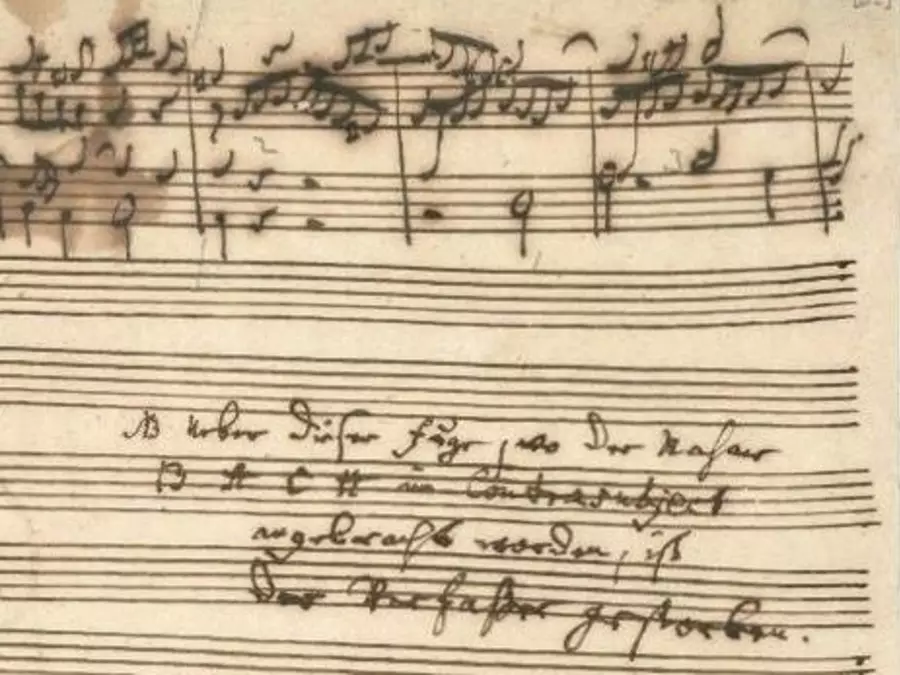 NB Ueber dieser Fuge, wo der Nahme
B A C H im Contrasubject
angebracht worden, ist
Der Verfasser gestorben.